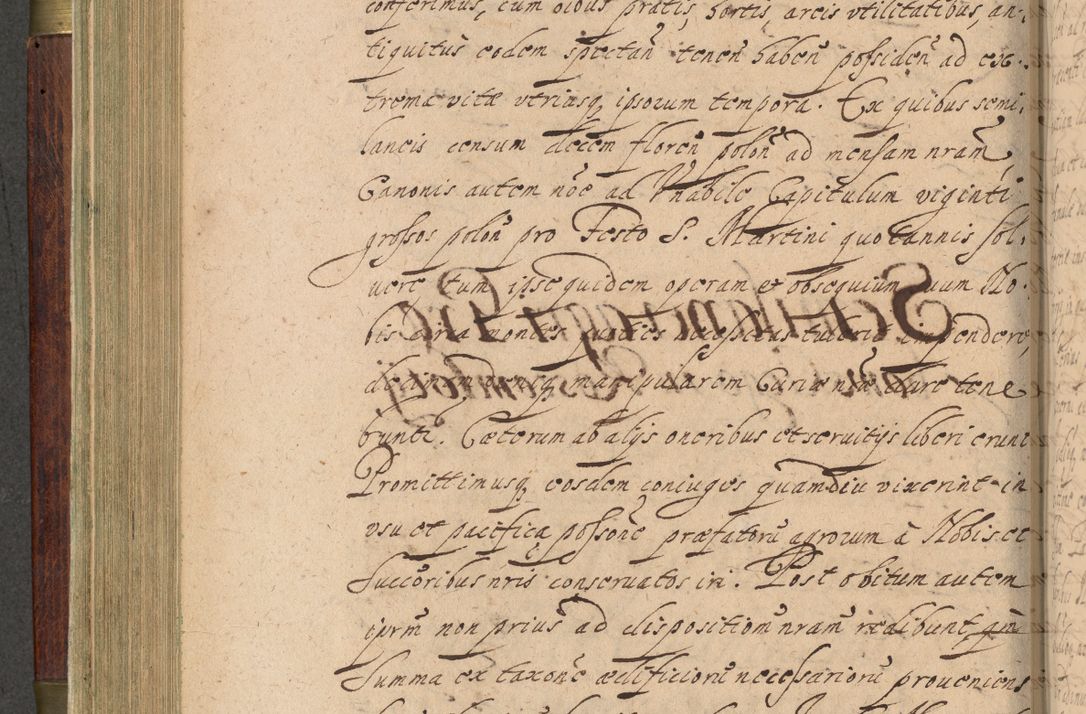 conferimus, cum oibus pratis, hortis, arcis vtilitatibus, an-
tiquitus eodem spectań teneń habeń possideń ad ex-
trema vitæ vtriusq ipsorum tempora. Ex quibus semi
laneis censum decem floreń poloń ad mensam nram
Canonis autem noē ad Vnabile Capitulum viginti
grossos poloń pro Festo S. Martini quotannis sol,
uere tum ipse quidem operam et obsequium suum No-
bis circa montes quoties necessitas tulerit impendere,
manipularem Curiæ nræ dare tene
bunt. Cæterum ab alijs oneribus et seruitijs liberi erunt
Promittimusq eosdem coniuges quamdiu vixerint in
vsu et pacifica possone præfatorū agrorum à Nobis et
Succoribus nris conseruatos iri. Post obitum autem
iprm non prius ad dispositiom nram redibunt, qm
Summa ex taxone ædificiorū necessariorū proueniens